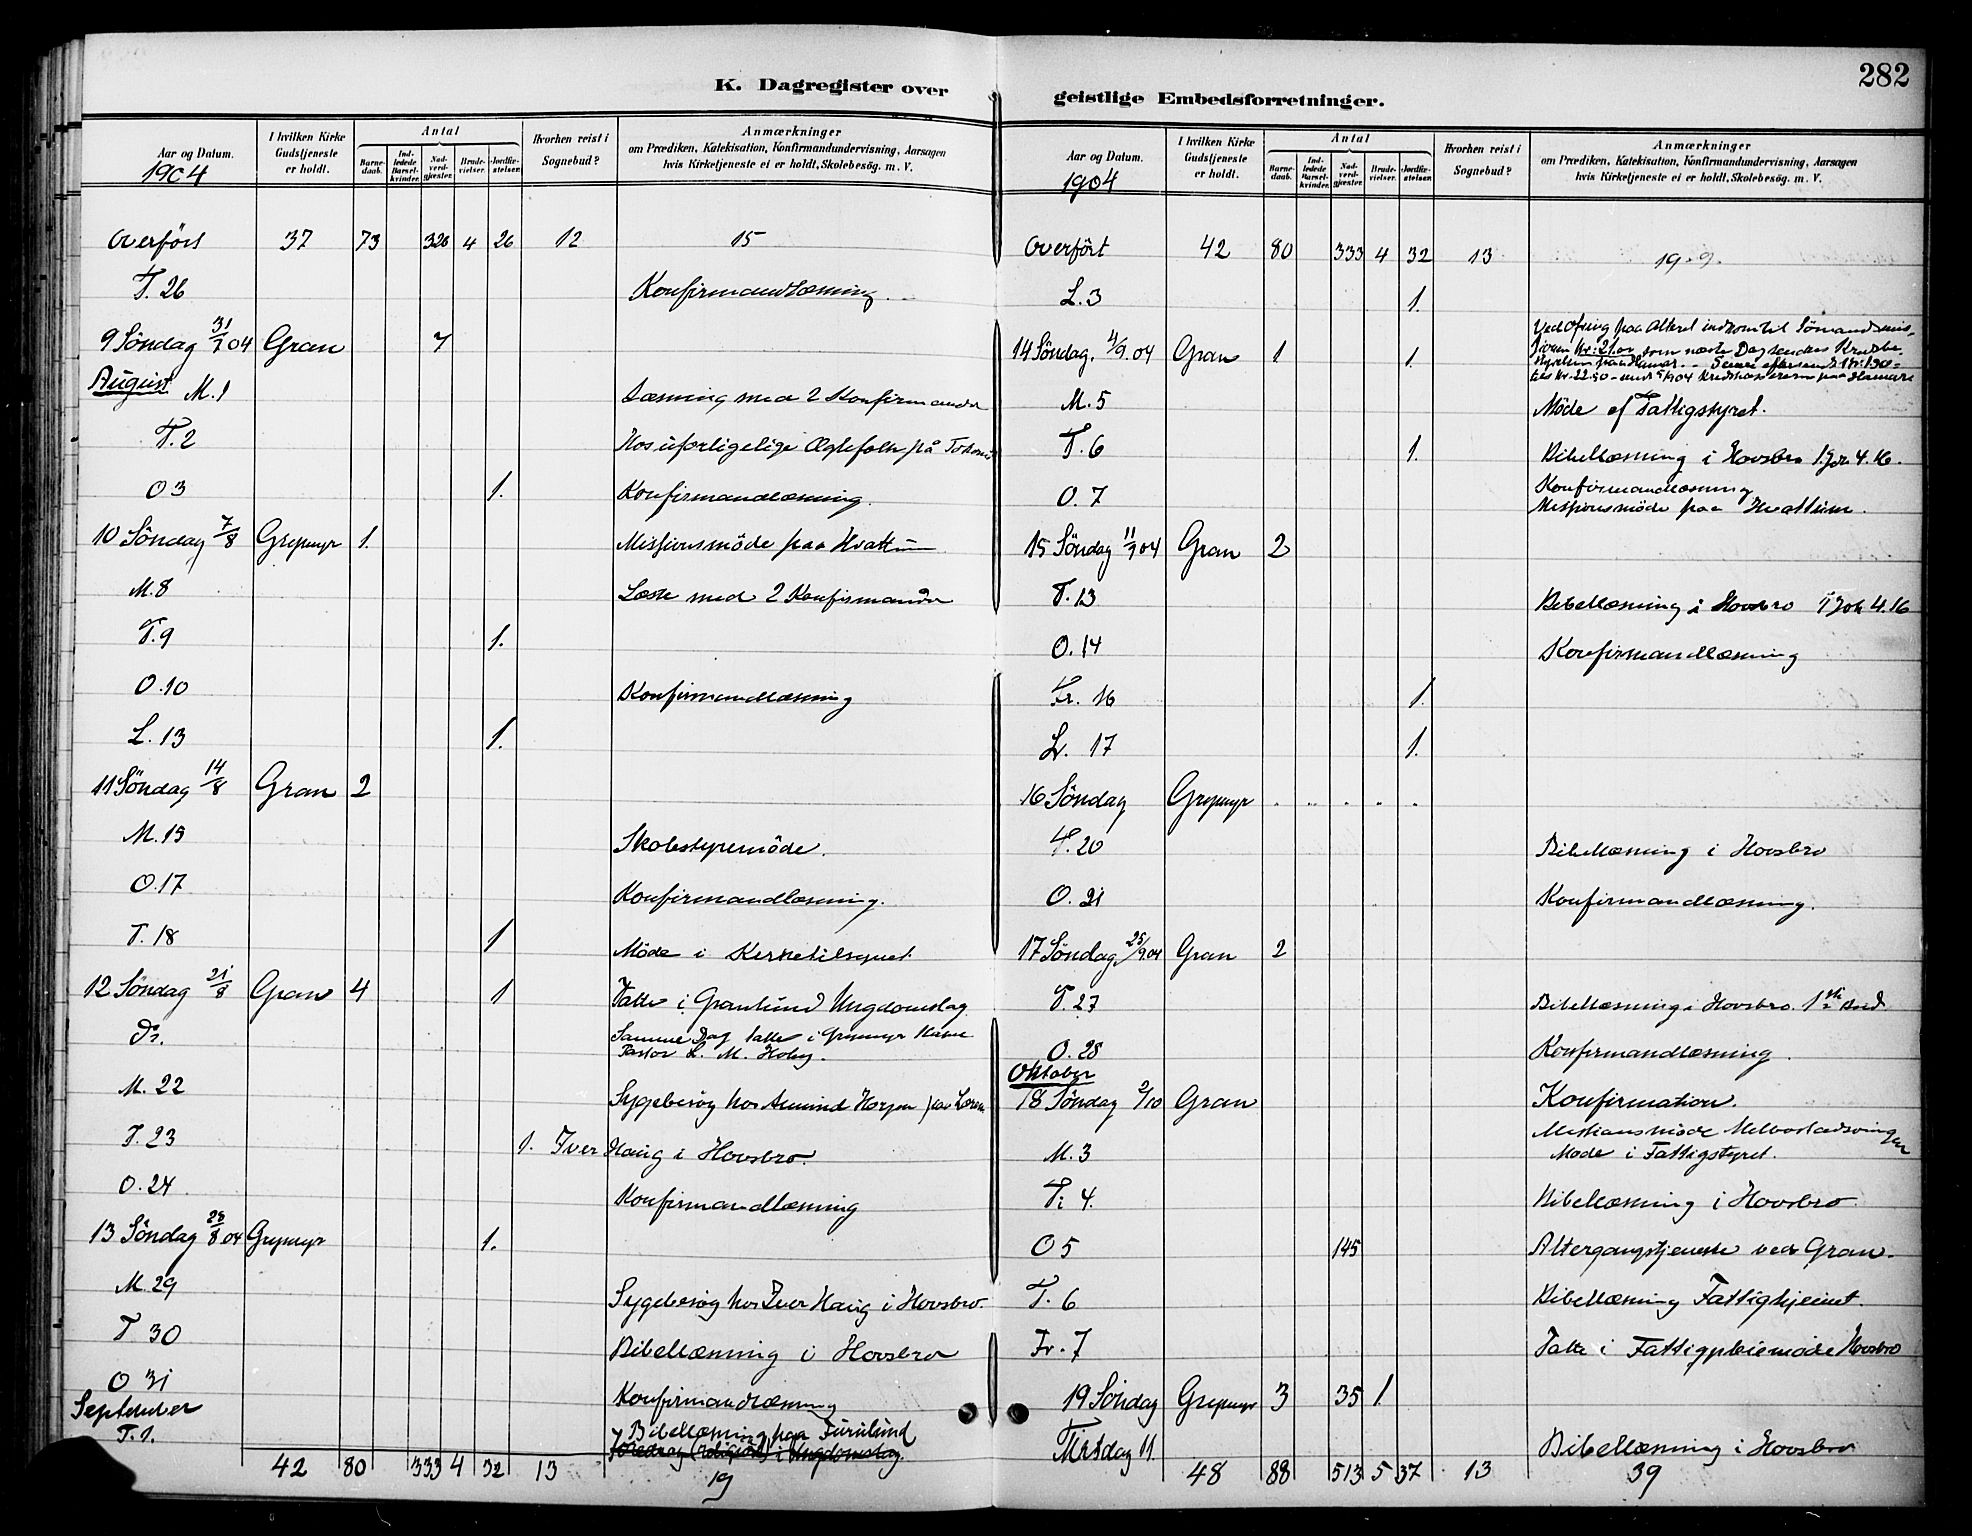 K. Dagregister over
Aar og Datum.
1904
I hvilken Kirke Gudstjeneste er holdt.
Antal
Barne-daab.
Ind-ledede Barsel-kvinder.
Nad-verd-gjester.
Brude-vielser.
Jordfæ-stelser.
Hvorhen reist i Sognebud?
Anmærkninger
om Prædiken, Katekisation, Konfirmandundervisning, Aarsagen
hvis Kirketjeneste ei er holdt, Skolebesøg. m. V.
Overført 37 73 326 4 26 12 15
T. 26 Konfirmandlæsning
9 Söndag 31/7 04 Gran 7
August M. 1 Læsning med 2 Konfirmander
T. 2 Hos uforligelige Ægtefolk på
O 3 1. Konfirmandlæsning.
10 Söndag 7/8 Grymyr 1. Missionsmöde paa Hvattum
M. 8 Læste med 2 Konfirmander
T. 9 1.
O. 10 Konfirmandlæsning
L. 13 1.
11 Söndag 14/8 Gran 2
M. 15 Skolestyremöde.
O. 17 Konfirmandlæsning.
T. 18 1 Möde i Kirketilsynet
12 Söndag 21/8 Gran 4 1 Talte i Granlund Ungdomslag
Ds. Samme Dag talte i Grymyr Kirke
Pastor L. M.
M. 22 Sygebesög hos Amund
T. 23 1. Iver Haug i Hovsbro.
O. 24 Konfirmandlæsning
13 Söndag 28/8 04 Grymyr 1.
M. 29 Sygebesög hos Iver Haug i Hovsbro.
T 30 Bibellæsning i Hovsbro
O 31 Konfirmandlæsning
September
T. 1. Bibellæsning paa Furulund
Foredrag (religiöst) i Ungdomslag.
42 80 333 4 32 13 19
282
geistlige Embedsforretninger.
Aar og Datum.
1904
I hvilken Kirke Gudstjeneste er holdt.
Antal
Barne-daab.
Ind-ledede Barsel-kvinder.
Nad-verd-gjester.
Brude-vielser.
Jordfæ-stelser.
Hvorhen reist i Sognebud?
Anmærkninger
om Prædiken, Katekisation, Konfirmandundervisning, Aarsagen
hvis Kirketjeneste ei er holdt, Skolebesøg. m. V.
Overfört 42 80 333 4 32 13 19
L. 3 1.
14 Söndag. 4/9. 04 Gran 1 1. Ved Ofring paa Alteret indkom til Sömandsmis-
sionen Kr: 21.00 som næste Dag sendes
M. 5 Möde af Fattigstyret.
T. 6 1. Bibellæsning i Hovsbro 1 Joh 4.16.
O. 7 Konfirmandlæsning
Missionsmöde paa Hvattum.
15 Söndag 11/9 04 Gran 2
T. 13 Bibellæsning i Hovsbro 1 Joh 4.16
O. 14 Konfirmandlæsning
Fr. 16 1.
L. 17 1.
16 Söndag Grymyr " " " " "
T. 20 Bibellæsning i Hovsbro
O. 21 Konfirmandlæsning.
17 Söndag 25/9 04 Gran 2
T. 27 Bibellæsning i Hovsbro. 1ste Bud
O. 28 Konfirmandlæsning.
Oktober
18 Söndag 2/10 Gran Konfirmation.
Missionsmöde Melbostadsvingen
M. 3 Möde i Fattigstyret.
Ti 4. Bibellæsning i Hovsbro.
O 5 145 Altergangstjeneste ved Gran.
T. 6 Bibellæsning Fattighjemmet.
Fr. 7 Talte i Fattigpleiemöde Hovsbro
19 Söndag Grymyr 3 35 1.
Tirsdag 11. Bibellæsning i Hovsbro
48 88 513 5 37 13 39